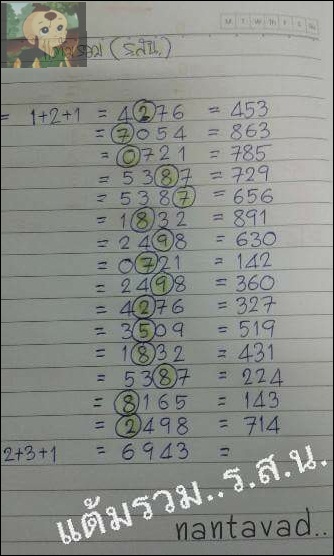 แต้มรวม (ร.ส.น.)
= 1+2+1 = 4276 = 453
= 7054 = 863
= 0721 = 785
= 5387 = 729
= 5387 = 656
= 1832 = 891
= 2498 = 630
= 0721 = 142
= 2498 = 360
= 4276 = 327
= 3509 = 519
= 1832 = 431
= 5387 = 224
= 8165 = 143
= 2498 = 714
2+3+1 = 6943 =
แต้มรวม..ร.ส.น.
nantavad..